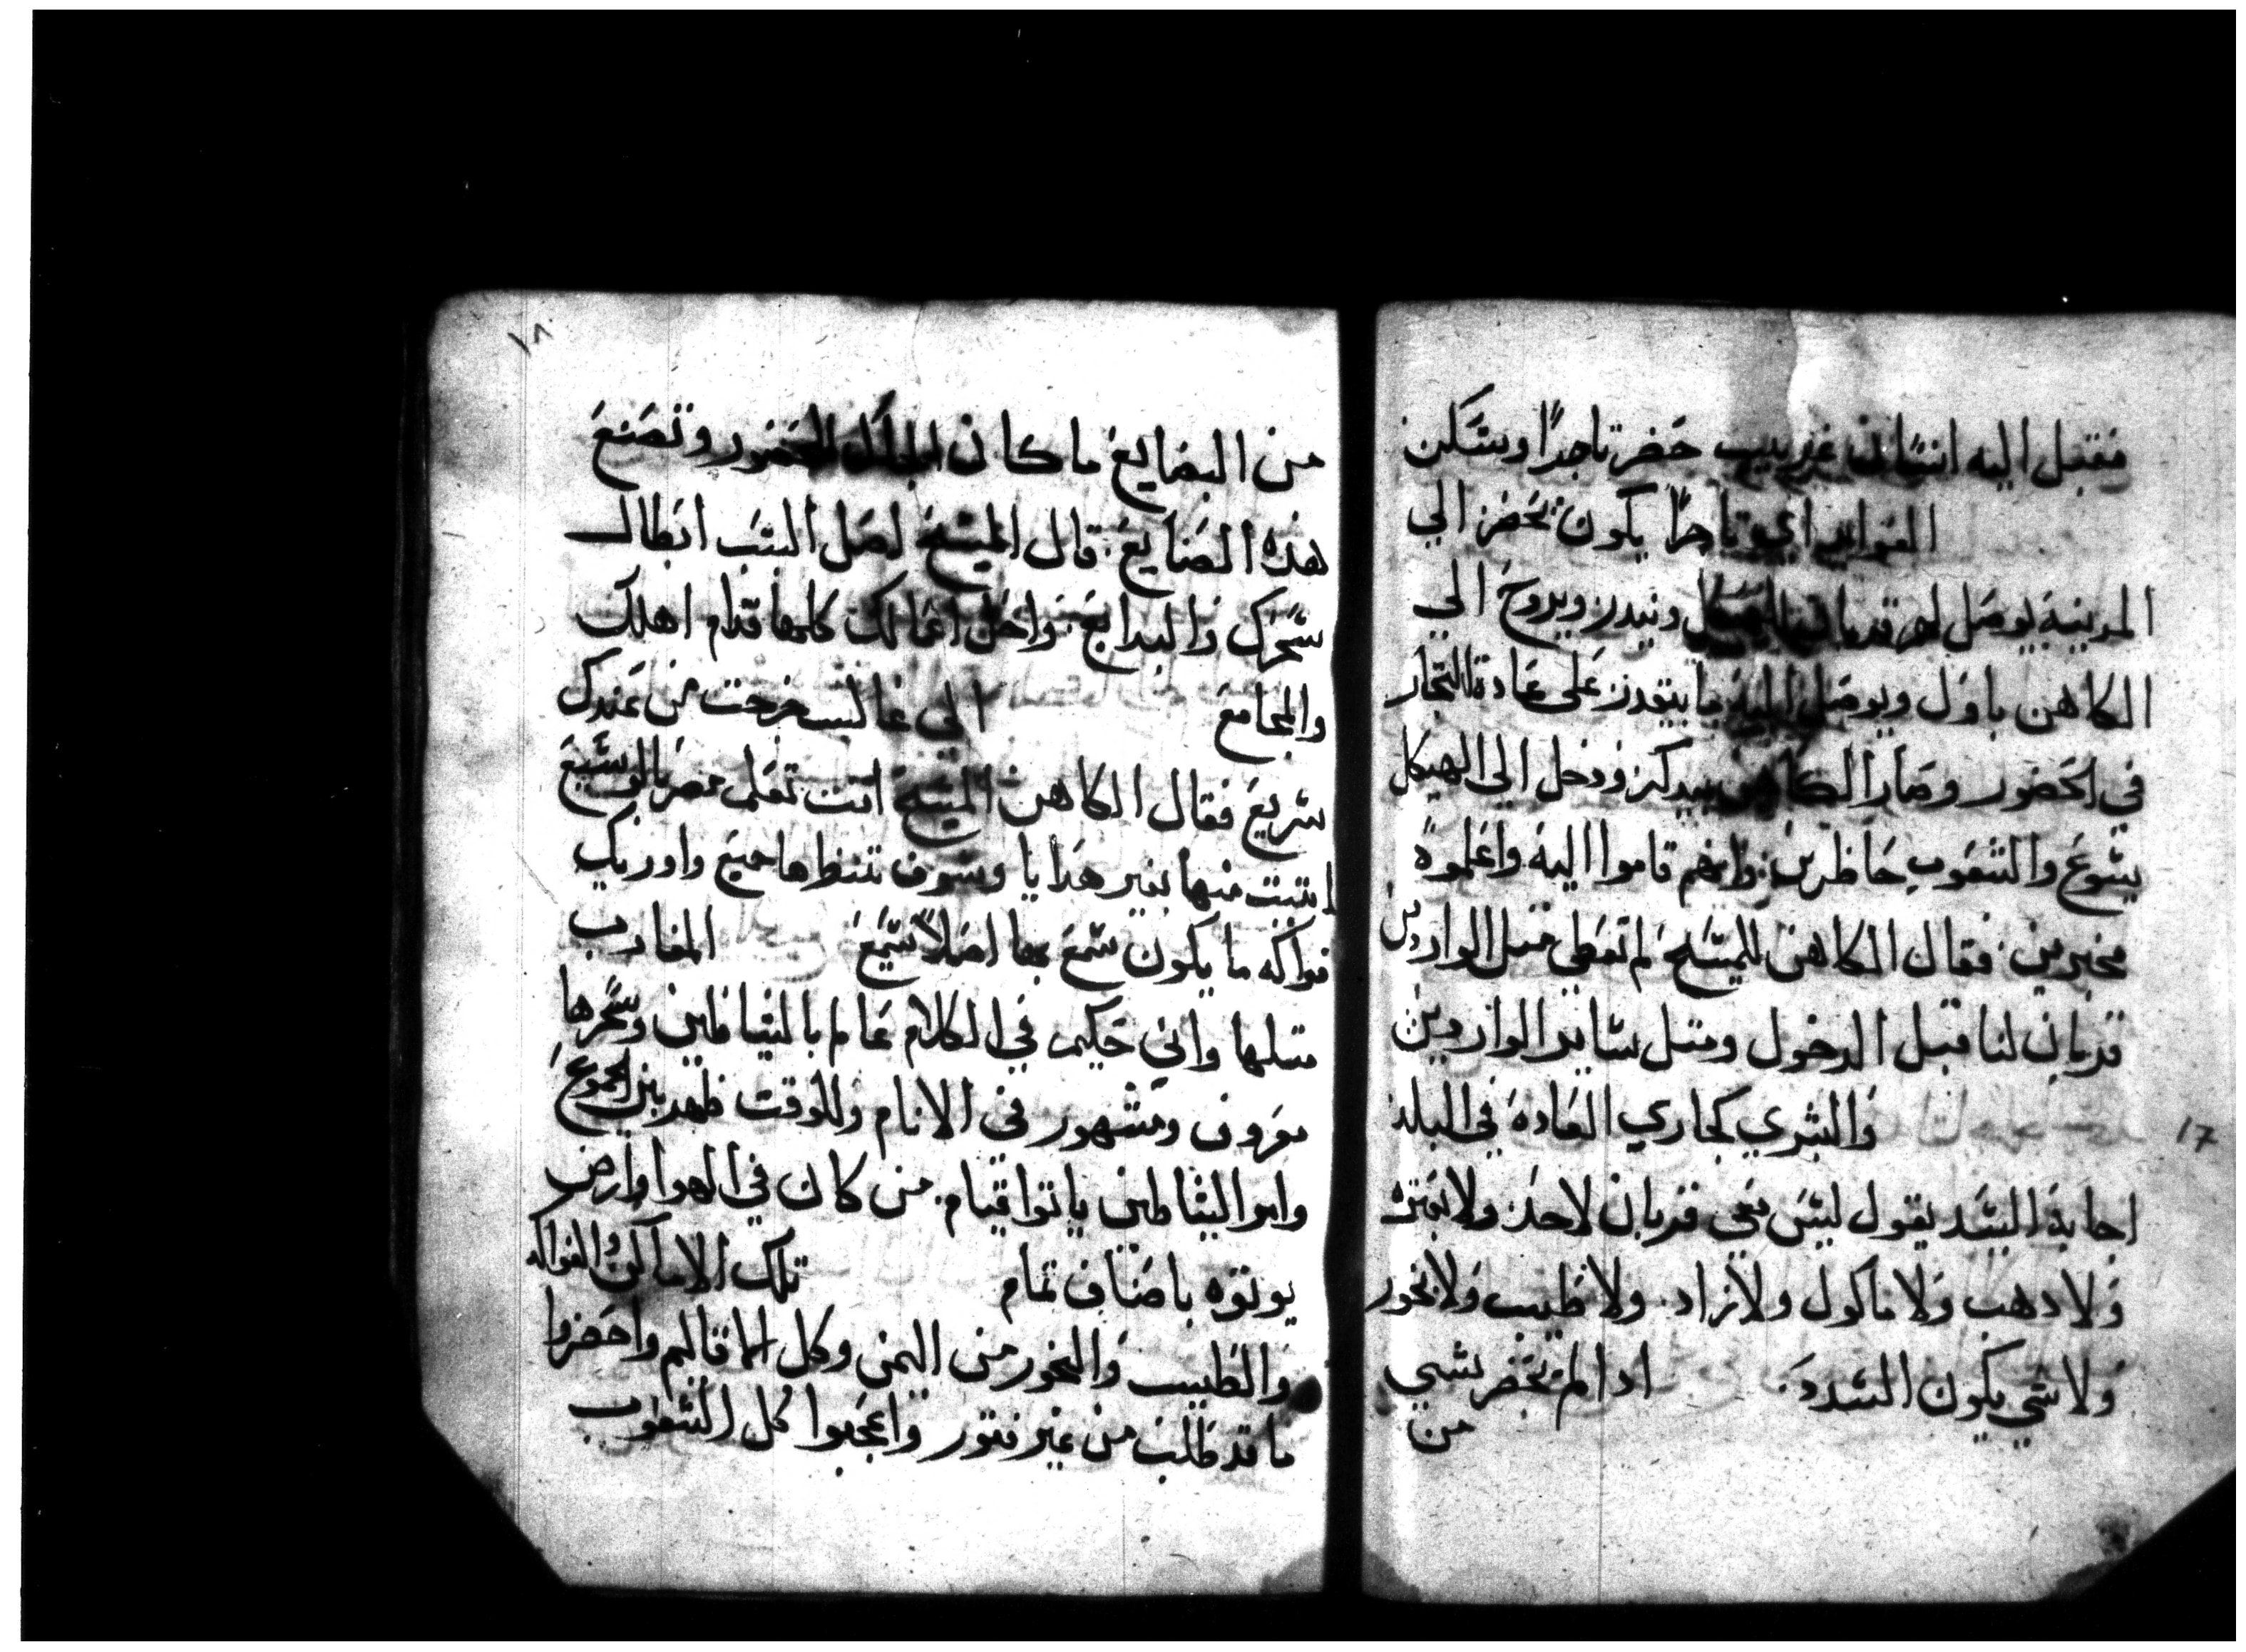 فقيل اليه انسان غريب حضر تاجرًا وسكن
العوايد اي تاجرًا يكون يحضر الي
المدينة يوصل لهم قربان الهيكل ونيدرز ويروح الي
الكاهن باول ويوصل اليه ما يتقدر علي عادة التجار
في الحضور وصار الكاهن يبدكرز ودخل الي الهيكل
يسوع والشعوب حاظرين وانهم قاموا اليه واعلموه
مخبرين فقال الكاهن للمسيح لم تعطي متل الواردين
قربان لنا قبل الدخول ومتل ساير الواردين
والشري كجاري العاده في البلد
اجابة السيد يقول ليس معي قربان لاحد ولا
ولا دهب ولا ماكول ولا زاد ولا طيب ولا بخور
ولا شي يكون السدد ادا لم تحضر بشي
من
17
١٨
من البضايع ما كان لك الحضور وتصنع
هذه الصنايع قال المسيح لصل السبب ابطال
سحرك والبدايع واخلي اعمالك كلها قدام اهلك
والمجامع الي غالب خرجت من عندك
سريع فقال الكاهن المسيح انت تعلم مصر بالوسيع
اتيت منها بغير هدايا وسوف تنظرها جميع واوريك
فواكه ما يكون سمع بها اصلاً سميع المغارب
متلها واني حكيم في الكلام عالم بالشياطين وسحرها
معروف ومشهور في الانام وللوقت ظهر بين الجموع
وامر الشياطين ياتوا قيام من كان في الهوا وارض
يوتوه باصناف تمام تلك الاماكن والفواكه
والطيب والبخور من اليمن وكل ما قالهم واحضروا
ما قد طلب من غير فتور واعجبوا كل الشعوب